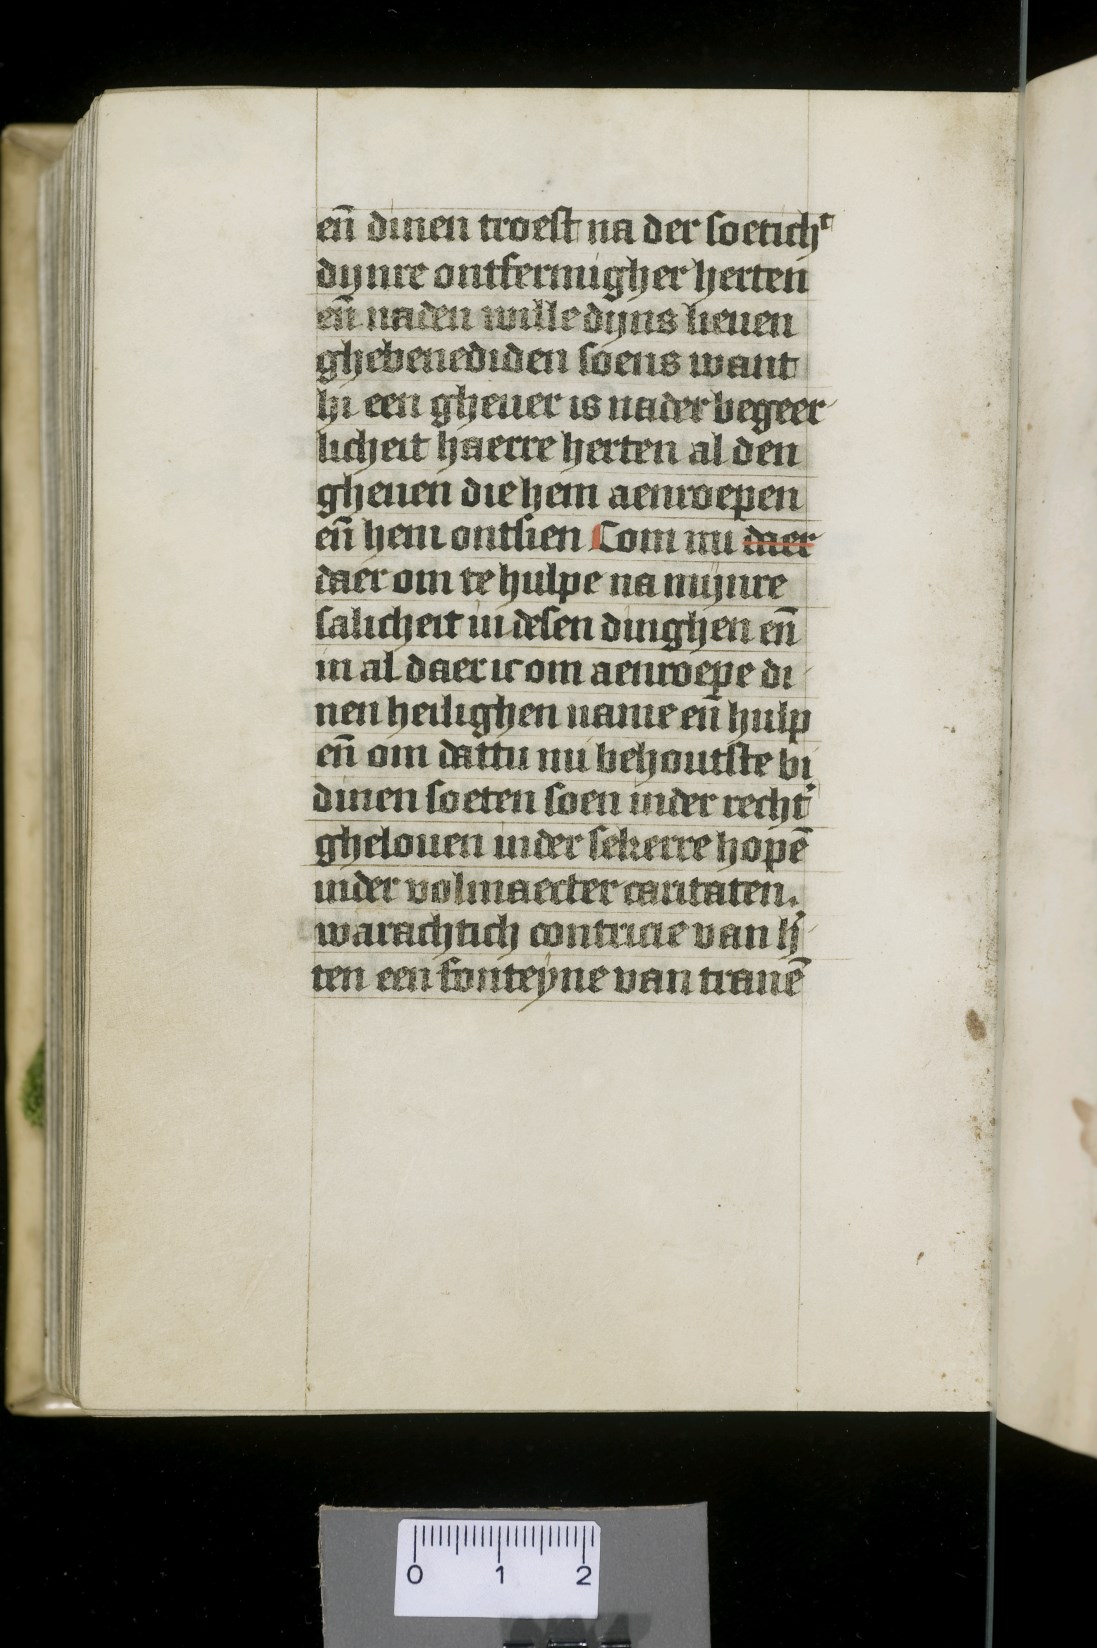 en̄ dinen troest na der soeticht
dijnre ontfermigher herten
en̄ naden wille dijns lieuen
ghebenediden soens want
hi een gheuer is nader begeer
licheit haerre herten al den
gheuen die hem aenroepen
en̄ hem ontsien Com mi daer
daer om te hulpe na mijnre
salicheit in desen dinghen en̄
in al daer ic om aenroepe di
nen heilighen name en̄ hulp
en̄ om dattu mi behoutste bi
dinen soeten soen inder recht'
ghelouen inder sekerre hopē
inder volmaecter caritaten.
warachtich contricie van h'
ten een fonteyne van tranē
0 1 2